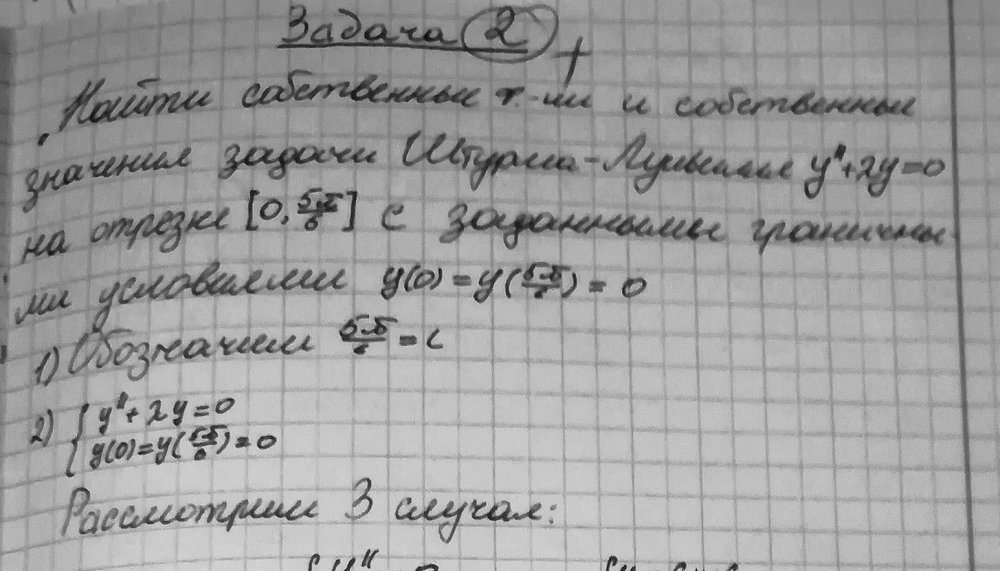 Задача 2
Найти собственные ф-ии и собственные
значения задачи Штурма-Лиувилля y"+λy=0
на отрезке [0, 5π/6] с заданными граничны-
ми условиями y(0) = y(5π/6) = 0
1) Обозначим 5π/6 = L
2) { y"+λy=0
{ y(0)=y(5π/6)=0
Рассмотрим 3 случая: